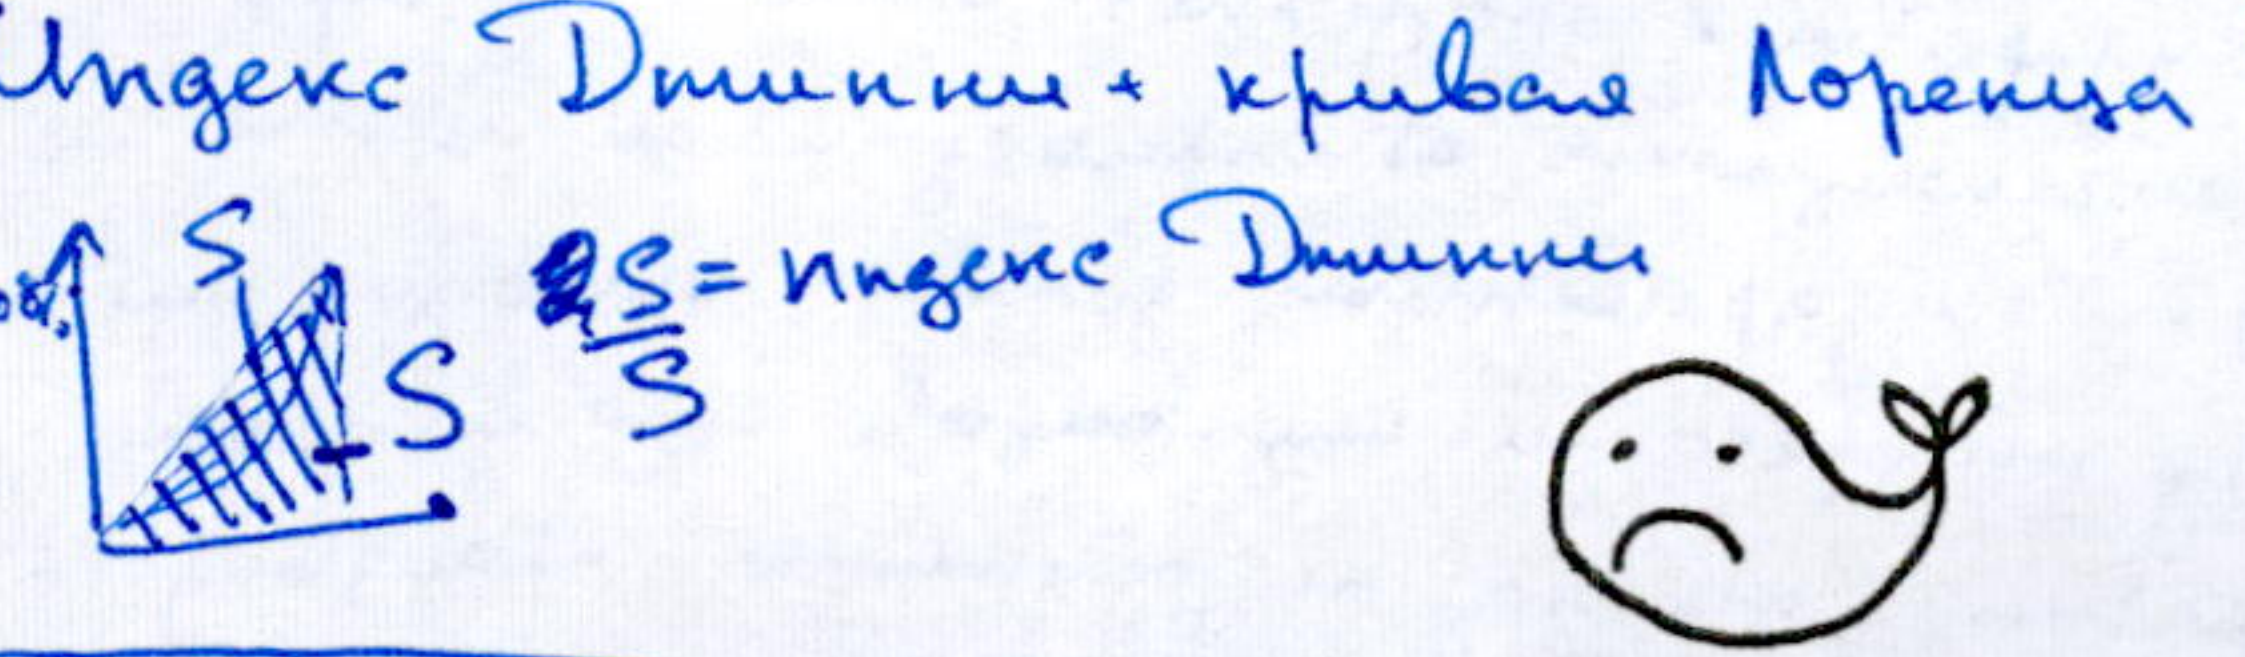 Индекс Джинни + кривая Лоренца
S S = индекс Джинни
S S